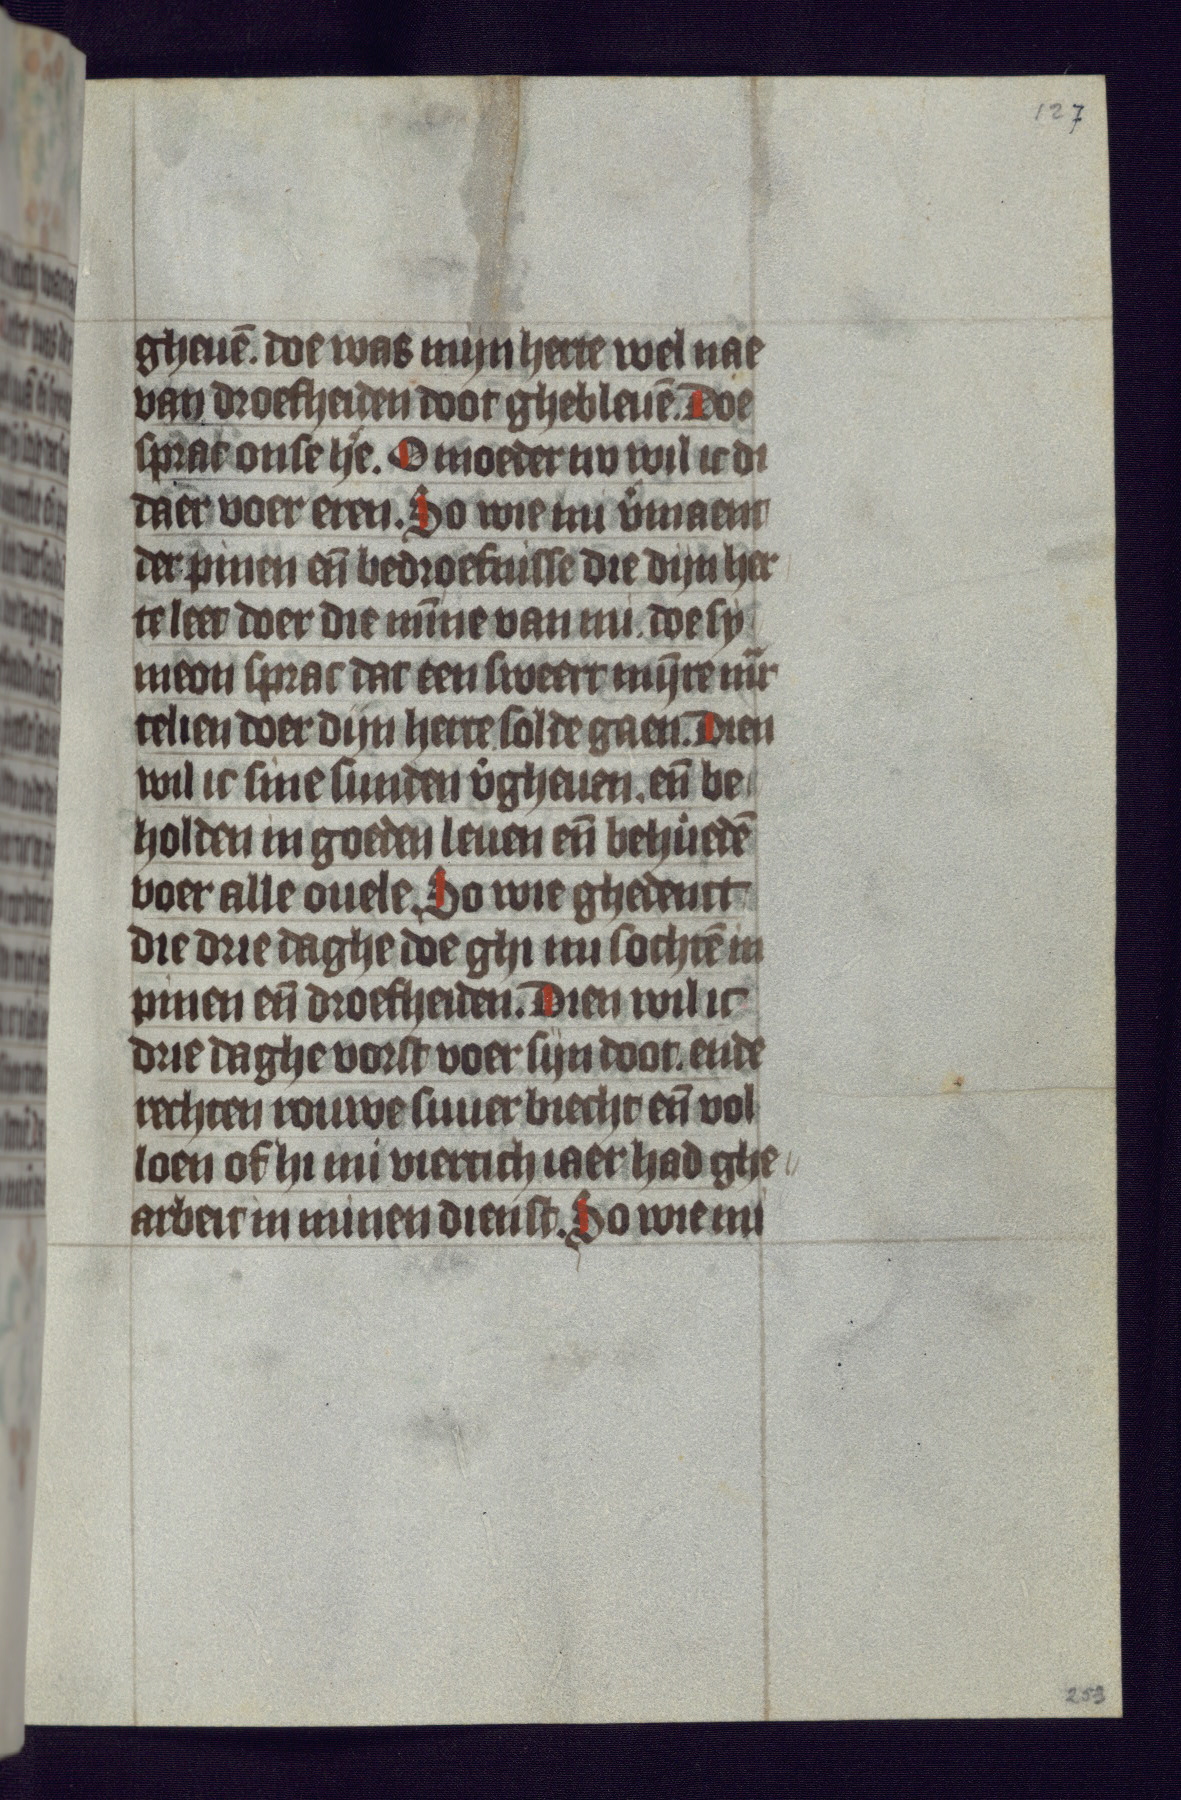 127
gheuē. doe was mijn herte wel nae
van droefheiden doot ghebleuē. Doe
sprac onse he͂. O moeder nv wil ic di
daer voer eren. So wie mi v͛maent
der pinen en̄ bedroefnisse die dijn her
te leet doer die mīne van mi. doe sy
meon sprac dat een sweert mȳre mar
telien doer dijn herte solde gaen. Dien
wil ic sine sunden v͛gheuen. en̄ be
holden in goeden leuen en̄ behuedē
voer alle ouele. So wie ghedenct
die drie daghe doe ghi mi sochtē in
pinen en̄ droefheiden. Dien wil ic
drie daghe vorst voer sijn doot. ende
rechten rouwe suuer biecht en̄ vol
loen of hi mi viertich iaer had ghe
arbeit in minen dienst. So wie mi
253